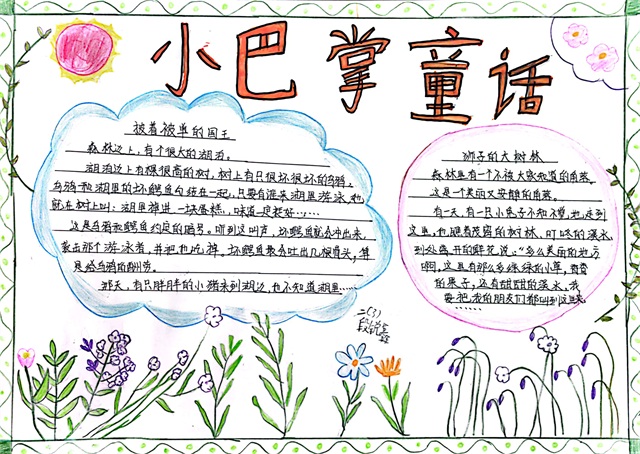 小巴掌童话
披着被单的国王
森林边上，有个很大的湖泊。
湖泊边上有棵很高的树，树上有只很坏很坏的乌鸦，
乌鸦和湖里的坏鳄鱼勾结在一起，只要有谁来湖里游泳，它
就在树上叫：湖里掉进一块蛋糕，味道一定挺好……
这是乌鸦和鳄鱼约定的暗号。听到这叫声，坏鳄鱼就会冲出来
袭击那个游泳者，并把他吃掉。坏鳄鱼最会吐出几根骨头，算
是给乌鸦的酬劳。
那天，有只胖胖的小猪来到湖边，他不知道湖里……
狮子的大树林
森林里有一个不被大家知道的角落。
这是一个美丽又安静的角落。
有一天，有一只小兔子不知不觉地走到
这里，他顺着茂密的树林、叮咚的溪水、
到处盛开的鲜花说：“多么美丽的地方
啊，这里有那么多绿绿的小草，
的果子，还有甜甜的溪水，我
要把我的朋友们都叫到这里来
……”
二(3)